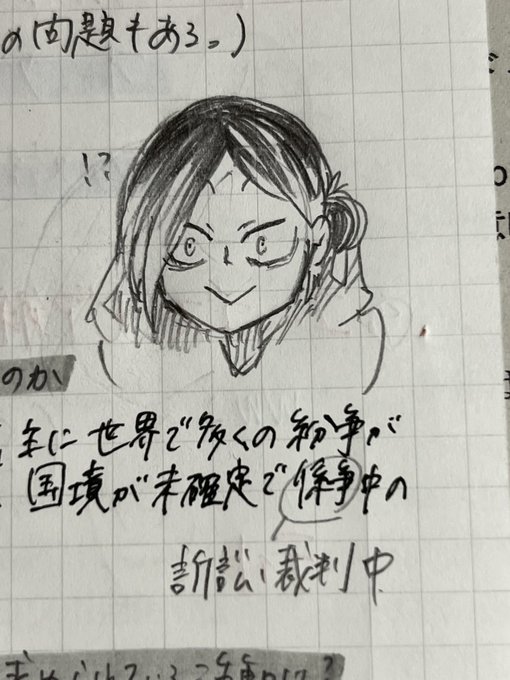 の問題もある。)
!?
のか
主に世界で多くの紛争が
国境が未確定で係争中の
訴訟・裁判中